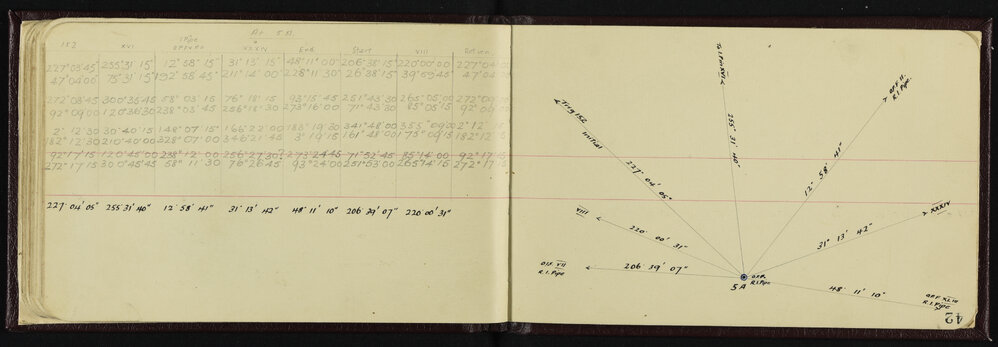 At 5A
152 XVI Pipe XXXIV End Start VIII Return
227°03'45 255 31 15 12° 58' 15" 31° 13' 15" 48° 11' 00" 206°38'15" 220°00'00" 227°04'00
47°04'00 75°31'15" 192°58'45" 211°14'00" 228°11'30" 26°38'15 39°59'45" 47°04
272°08'45 300°35'45 58° 03' 15 76° 18' 15 93°15'45 251°43'30 265°05'00 272°09
92°09'00 120°36'30 238°03'45 256°18'30 273°16'00 71°43'30 85°05'15 92°09
2° 12' 30 30°40'15 148°07'15" 166°22'00 183°19'30 341°48'00 355°09'00 2°12'
182°12'30 210°40'00 328°07'00 346°21'45 3°19'15 161°48'00 175°09'15 182°12
92°17'15 120°45'00 238°12'00 256°27'30 273°24'45 71°52'45 85°14'00 92°17'15
272°17'15 300°45'45 58° 11' 30 76°26'45 93°24'00 251°53'00 265°14'15 272°17'15
227° 04' 05" 255° 31' 40" 12° 58' 41" 31° 13' 42" 48° 11' 10" 206° 39' 07" 220° 00' 31"
To XVI
255° 31' 40"
OFF II.
R.I. Pipe.
12° 58' 41"
Trig 152
Initial
227° 04' 05"
XXXIV
31° 13' 42"
VIII
220° 00' 31"
Off. VII
R.I. Pipe
206° 39' 07"
OFF.
R.I. Pipe
5A
48° 11' 10"
OFF XLIV
R.I. Pipe
42